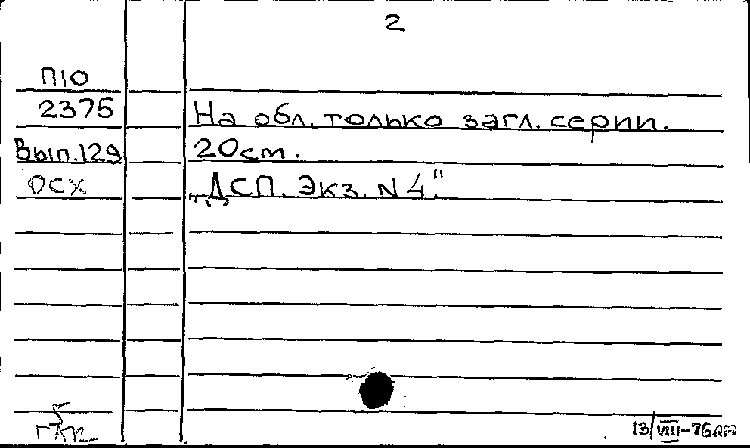 2
П10
2375 На обл. только загл. серии.
Вып.129 20см.
ОСХ „ДСП. Экз. N 4."
13/VIII-76